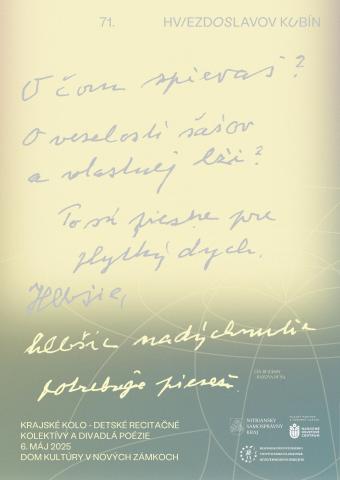 71. HVIEZDOSLAVOV KUBÍN
O čom spievaš?
O veselosti šašov
a vlastnej lži?
To sú piesne pre
plytký dych.
Hlbšie,
hlbšie nadýchnutie
potrebuje pieseň.
KRAJSKÉ KOLO - DETSKÉ RECITAČNÉ
KOLEKTÍVY A DIVADLÁ POÉZIE
6. MÁJ 2025
DOM KULTÚRY V NOVÝCH ZÁMKOCH
NITRIANSKY
SAMOSPRÁVNY
KRAJ
NÁRODNÉ
OSVETOVÉ
CENTRUM